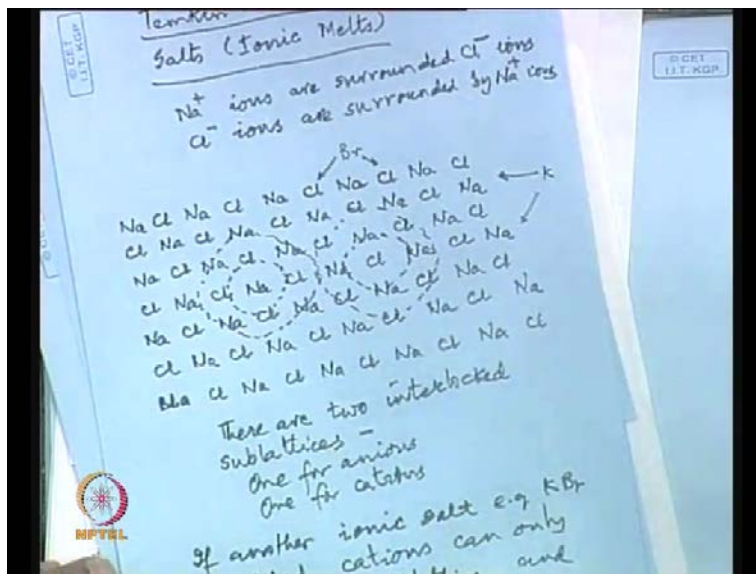 Temkin
Salts (Ionic Melts)
© CET
I.I.T. KGP
© CET
I.I.T. KGP
Na+ ions are surrounded Cl- ions
Cl- ions are surrounded by Na+ ions
Br
Na Cl Na Cl Na Cl Na Cl Na Cl
K
Cl Na Cl Na Cl Na Cl Na Cl Na
Na Cl Na Cl Na Cl Na Cl Na Cl
Cl Na Cl Na Cl Na Cl Na Cl Na
Na Cl Na Cl Na Cl Na Cl Na Cl
Cl Na Cl Na Cl Na Cl Na Cl Na
Na Cl Na Cl Na Cl Na Cl Na Cl
There are two interlocked
sublattices -
One for anions
One for cations
If another ionic salt e.g KBr
cations can only
and
NPTEL